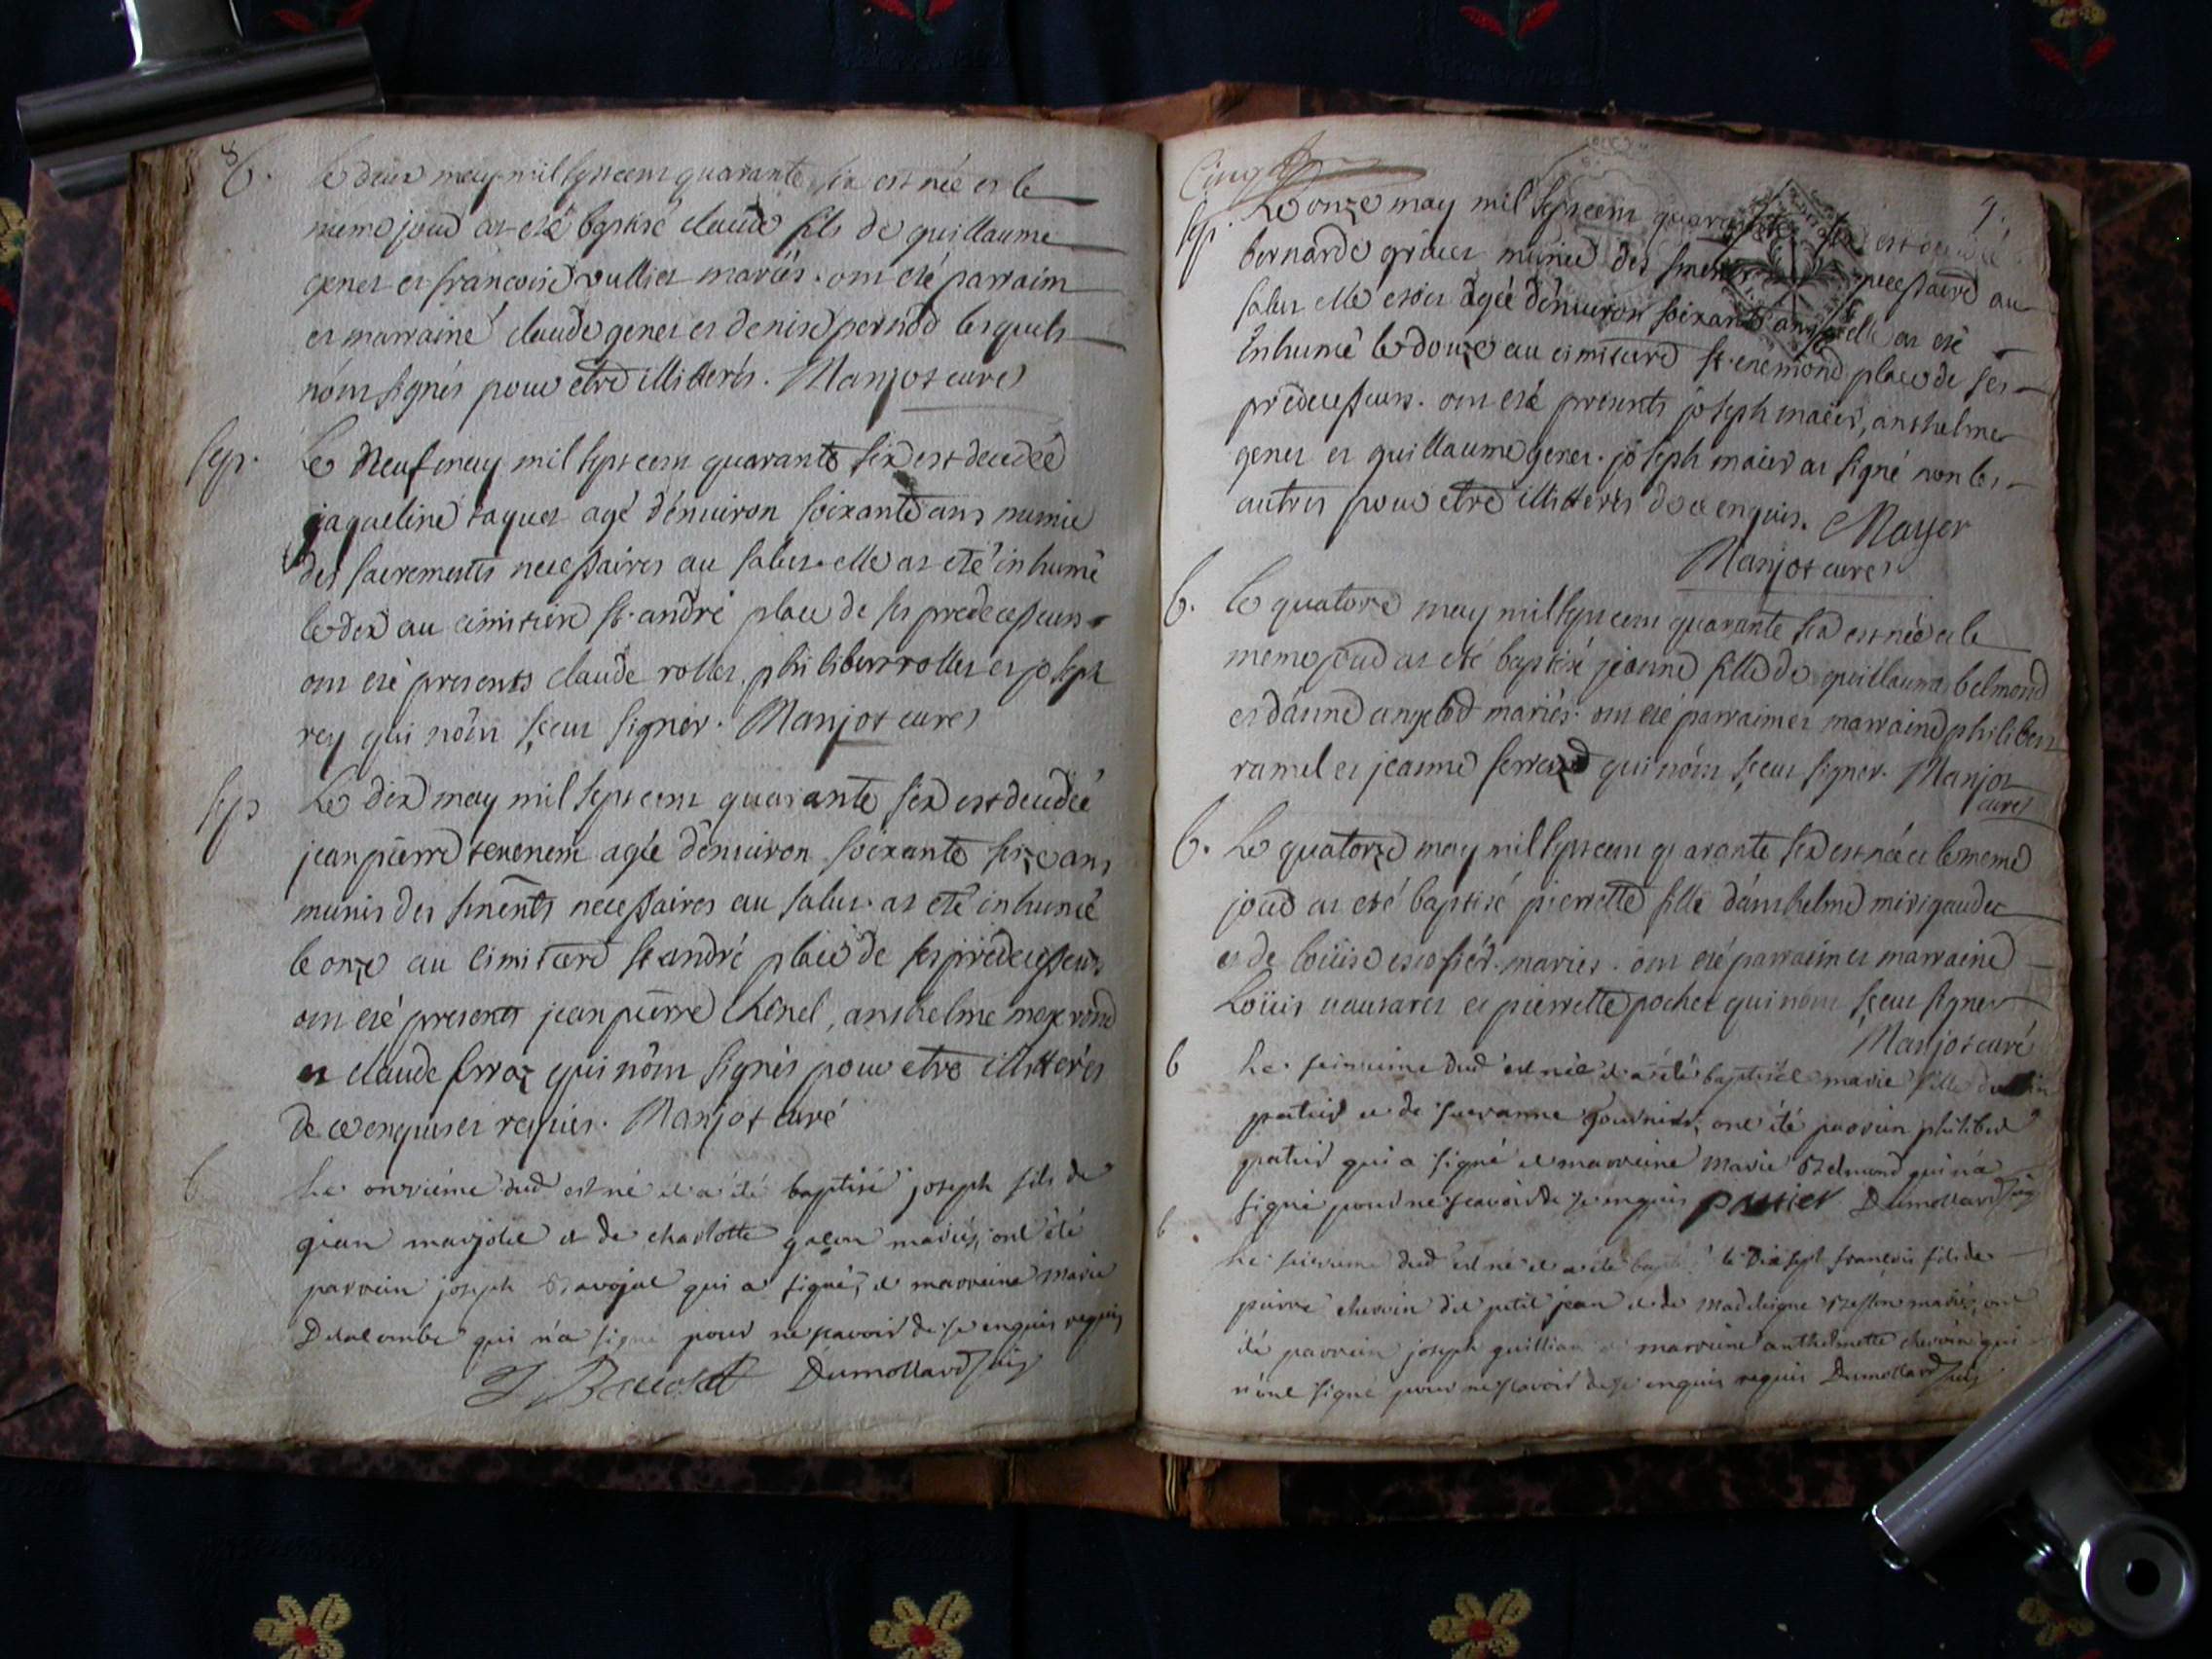 8
b. le deux may mil sept cent quarante six est né et le
meme jour at eté baptisé claude fils de guillaume
genet et francoise vullier mariés. ont eté parrain
et marraine claude genet et denise pernod lesquels
n'ont signés pour etre illitterés. Manjot curé
sep. Le neuf may mil sept cent quarante six est decedée
jaqueline taquet agé d'environ soixante ans munie
des sacrements necessaires au salut. elle at eté inhumé
le dix au cimitiere st. andré place de ses predecesseurs
ont eté presents claude rollet, philibert rollet et joseph
rey qui n'ont sceut signer. Manjot curé
sep Le dix may mil sept cent quarante six est decedée
jean pierre tenenem agée d'environ soixante seize ans
munis des sments necessaires au salut. at eté inhumé
le onze au cimitiere st andré place de ses predecesseurs
ont eté presents jean pierre Chenel, anthelme meyrond
et claude ferraz qui n'ont signés pour etre illitterés
de ce enquis et requis. Manjot curé
b Le onzième dud est né et a été baptisé joseph fils de
jean marjolet et de charlotte mariés, ont été
parrain joseph qui a signé, et marreine Marie
Delacombe qui n'a signé pour ne scavoir de ce enquis requis
Dumollard vic
Cinq
9.
sep. Le onze may mil sept cent quarante six est decedée
bernarde munie des sments necessaire au
salut elle etoit agée d'environ soixante ans elle at eté
inhumé le douze au cimitiere st. enemond place de ses
predecesseurs. ont eté presents joseph maier, anthelme
genet et guillaume genet. joseph maier at signé non les
autres pour etre illitterés de ce enquis. Mayer
Manjot curé
b. Le quatorze may mil sept cent quarante six est née et le
meme jour at eté baptisé jeanne fille de guillaume belmond
et d'anne angelod mariés. ont eté parrain et marraine philibert
ramel et jeanne qui n'ont sceut signer. Manjot
curé
b. Le quatorze may mil sept cent quarante six est née et le meme
jour at eté baptisé pierrette fille d'anthelme mirigaudet
et de loüise escofier mariés. ont eté parrain et marraine
Loüis vautaret et pierrette pochet qui n'ont sceut signer
Manjot curé
b Le seizieme dud est née et a été baptisée marie fille
patier et de suzanne gournier, ont été parrein philibert
patier qui a signé et marreine Marie Belmond qui n'a
signé pour ne scavoir de ce enquis patier Dumollard vic
b Le seizieme dud est né et a été baptisé le dix sept françois fils de
pierre chervin dit petit jean et de Madeleigne mariés, ont
été parrein joseph guillian et marreine anthelmette chervin qui
n'ont signé pour ne scavoir de ce enquis requis Dumollard vic